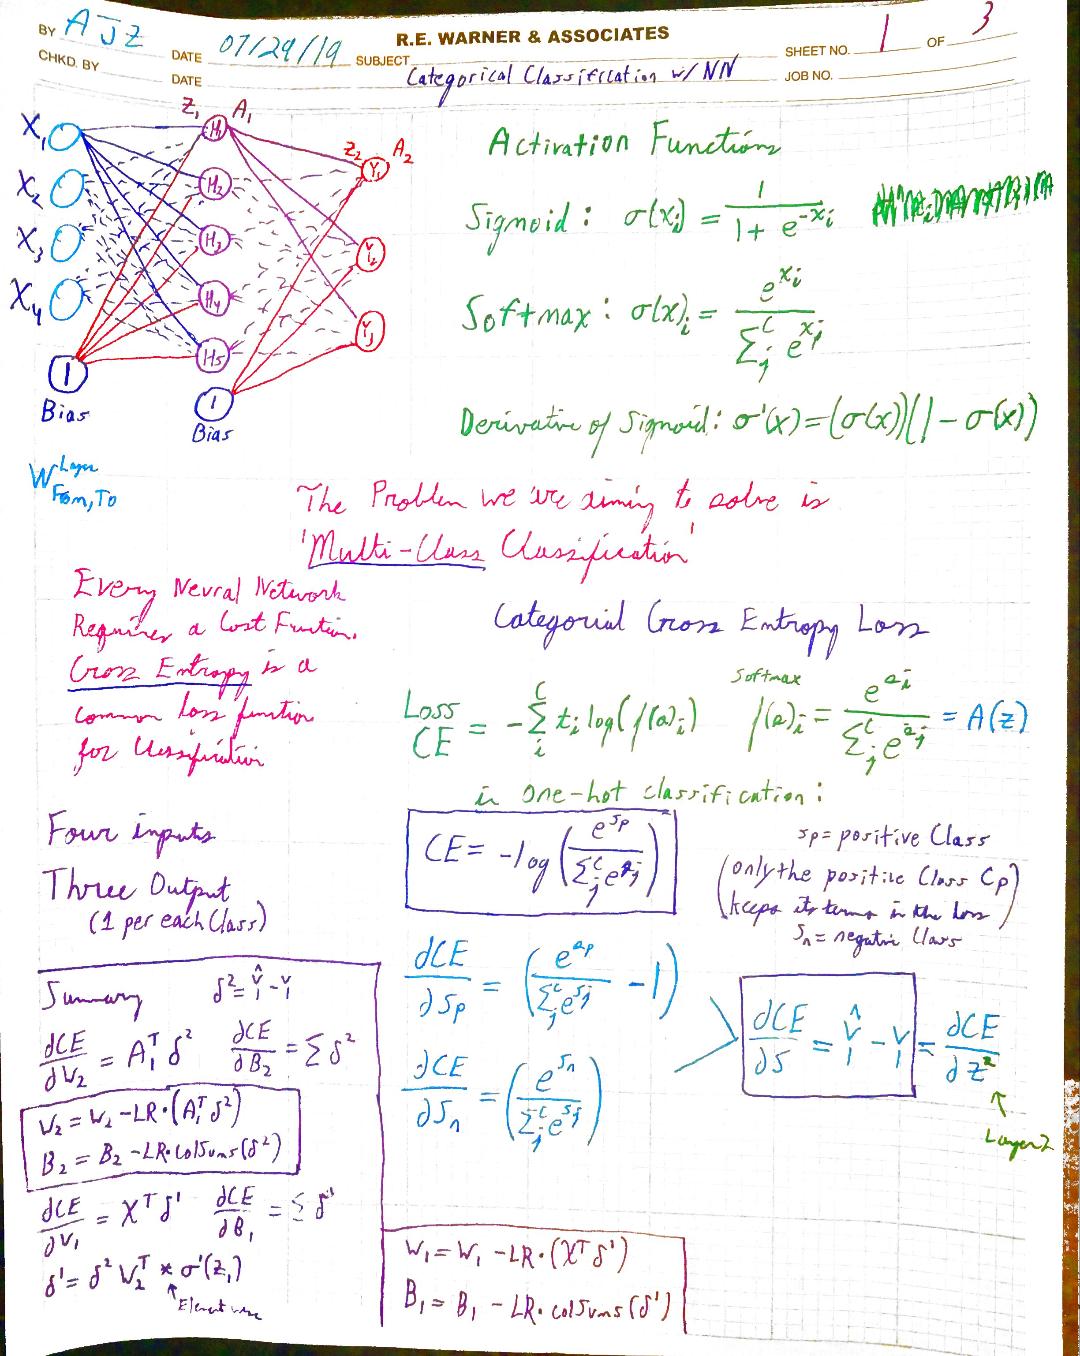 BY AJZ DATE 07/29/19 R.E. WARNER & ASSOCIATES SHEET NO. 1 OF 3
CHKD. BY DATE SUBJECT Categorical Classification w/ NN JOB NO.
X₁ Z₁ H₁ A₁ Z₂ Y₁ A₂
X₂ H₂
X₃ H₃ Y₂
X₄ H₄ Y₃
H₅
1 Bias
1 Bias
W^Layer From,To
Activation Functions
Sigmoid: σ(xᵢ) = 1 / (1 + e^-xᵢ)
Softmax: σ(x)ᵢ = e^xᵢ / Σⱼ^C e^xⱼ
Derivative of Sigmoid: σ'(x) = (σ(x))(1 - σ(x))
The Problem we're aiming to solve is
'Multi-Class Classification'
Every Neural Network
Requires a Cost Function.
Cross Entropy is a
common loss function
for Classification
Categorial Cross Entropy Loss
Loss CE = -Σᵢ^C tᵢ log(f(a)ᵢ) Softmax f(a)ᵢ = e^aᵢ / Σⱼ^C e^aⱼ = A(z)
in one-hot classification:
CE = -log(e^Sp / Σⱼ^C e^aⱼ)
Sp = positive Class
(only the positive Class Cp
keeps its terms in the loss)
Sn = negative Class
Four inputs
Three Output
(1 per each Class)
dCE/∂Sp = (e^ap / Σⱼ^C e^Sj - 1)
∂CE/∂Sn = (e^Sn / Σⱼ^C e^Sj)
∂CE/∂S = Ŷ - Y = ∂CE/∂Z²
Layer 2
Summary δ² = Ŷ - Y
dCE/∂W₂ = A₁ᵀ δ² dCE/∂B₂ = Σ δ²
W₂ = W₂ - LR·(A₁ᵀ δ²)
B₂ = B₂ - LR·colSums(δ²)
dCE/∂W₁ = Xᵀ δ¹ dCE/∂B₁ = Σ δ¹
δ¹ = δ² W₂ᵀ * σ'(Z₁)
Element wise
W₁ = W₁ - LR·(Xᵀ δ¹)
B₁ = B₁ - LR·colSums(δ¹)